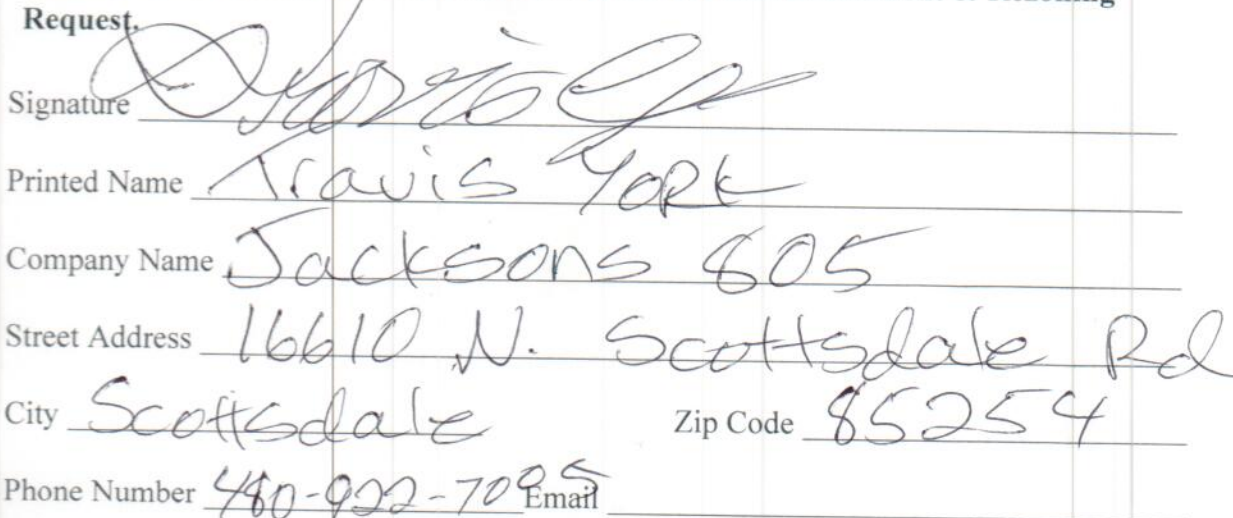 Request.
Signature
Printed Name Travis York
Company Name Jacksons 805
Street Address 16610 N. Scottsdale Rd
City Scottsdale Zip Code 85254
Phone Number Email